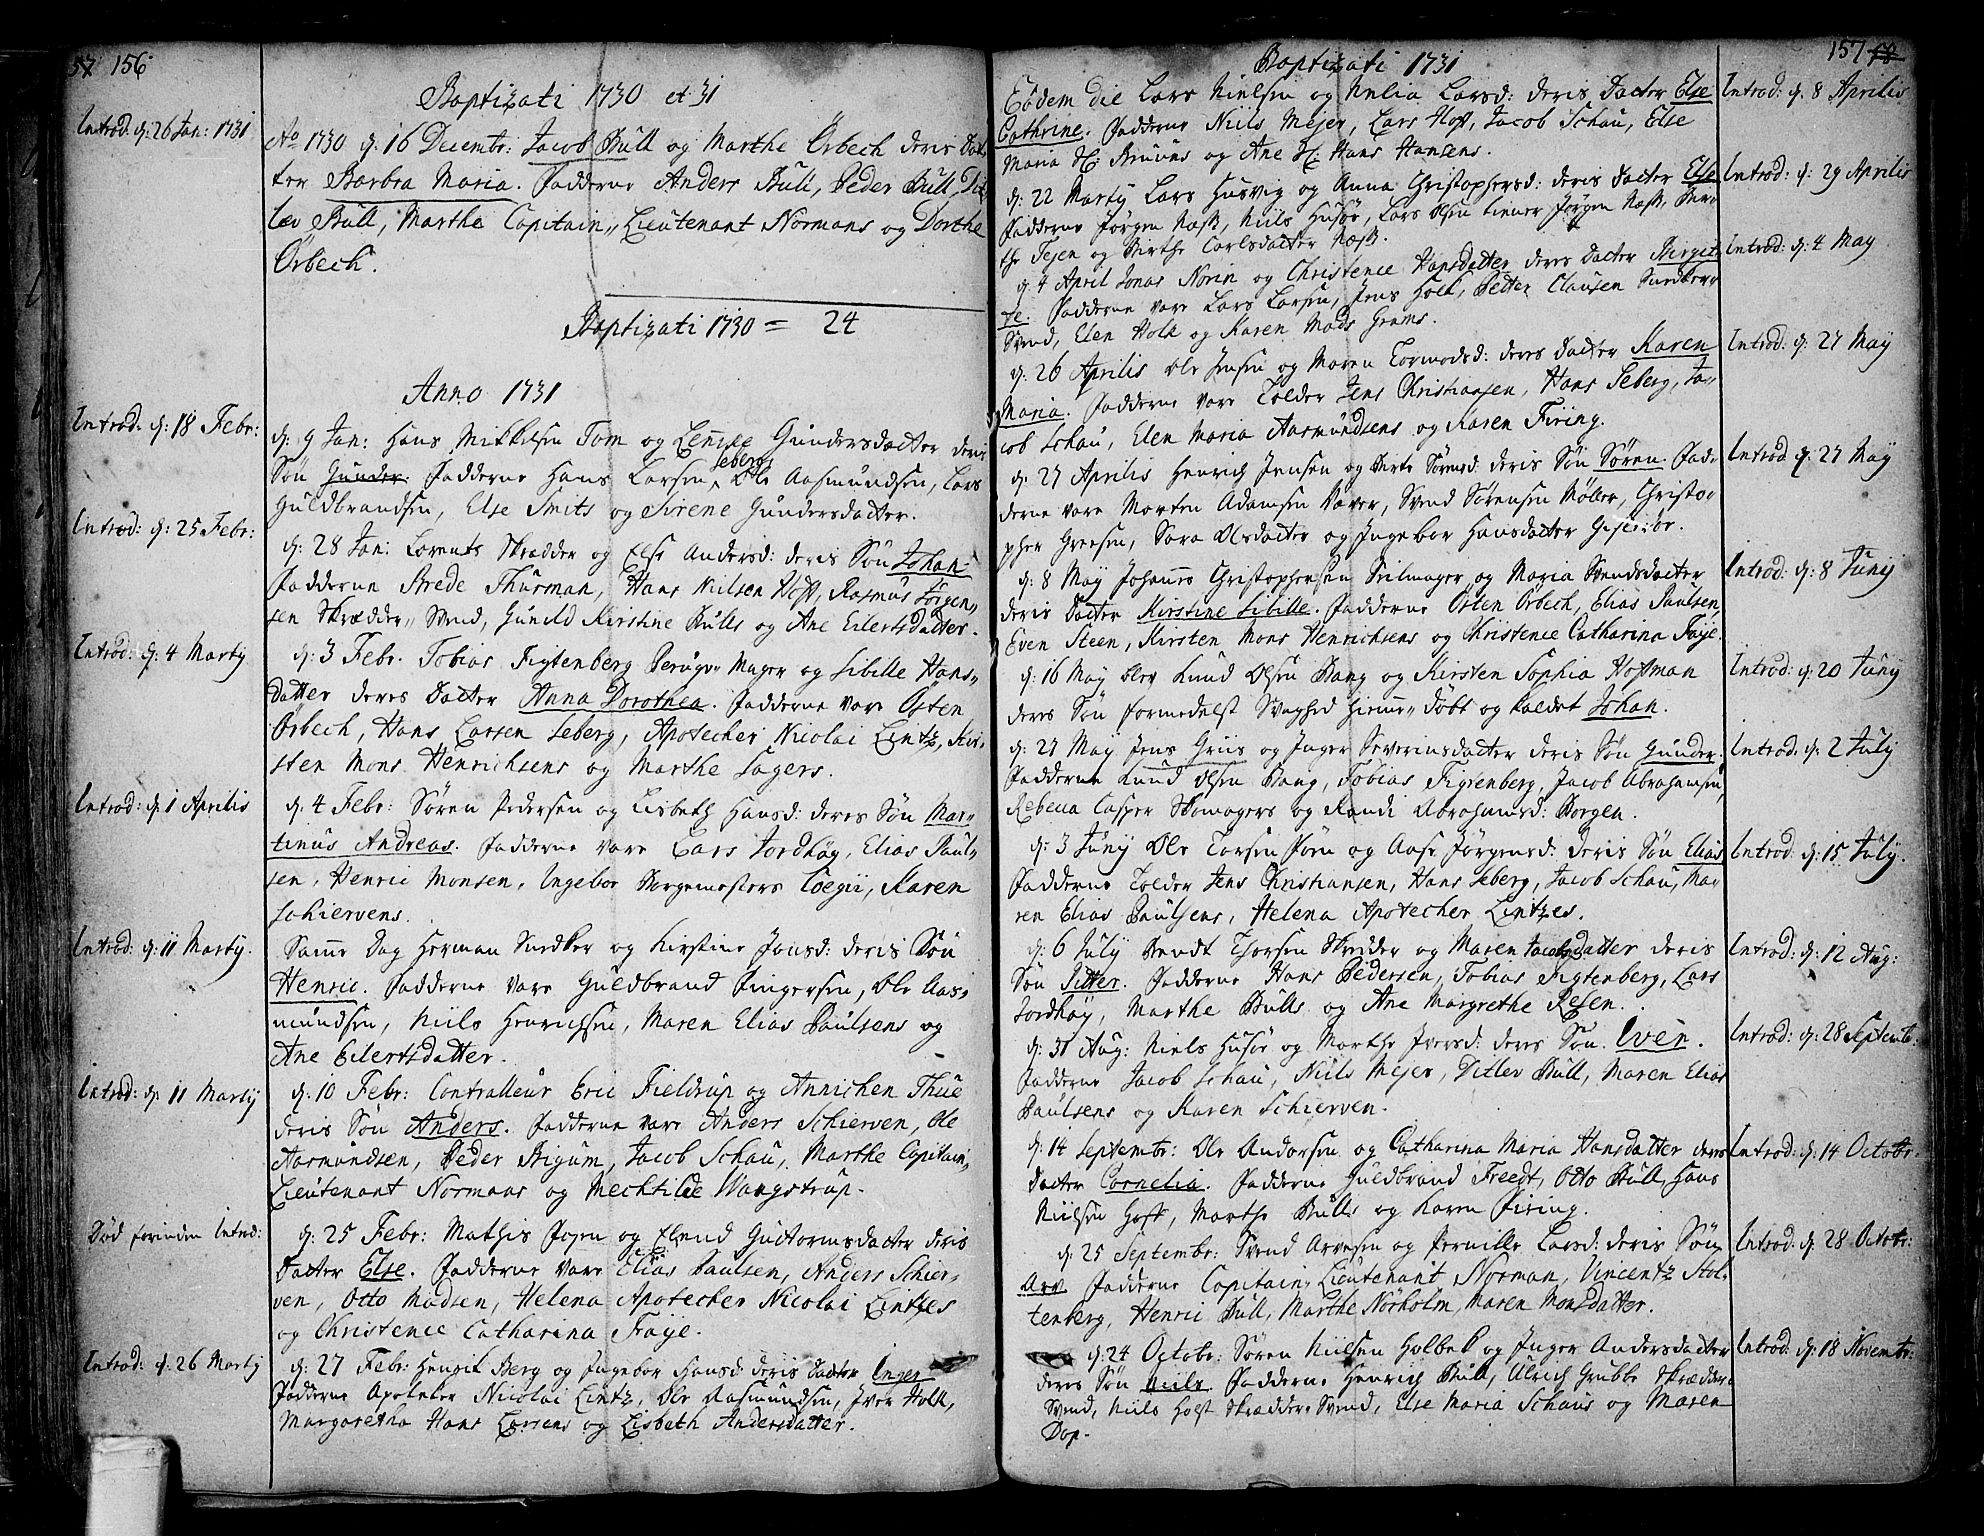 57 156
Baptizati 1730 et 31
Introd: d: 26 Jan: 1731
Ao 1730 d: 16 Decembr: Jacob Bull og Marthe Örbech deris Dat-
ter Barbra Maria. Fadderne Anders Bull, Peder Bull, Dit-
lev Bull, Marthe Capitain,, Lieutenant Normans og Dorthe
Örbech.
Baptizati 1730 = 24
Anno 1731
Introd: d: 18 Febr:
d: 9 Jan: Hans Mikkelsen Tom og Lenike Gundersdatter deris
Søn Gunder. Fadderne Hans Larsen Seberg, Ole Aasmundsen, Lars
Guldbrandsen, Else Smits og Sirene Gundersdatter.
Introd: d: 25 Febr:
d: 28 Jan: Lorents Skrædder og Else Andersd: deris Søn Johan
Fadderne Strede Thurman, Hans Nielsen Høst, Rasmus Jörgen-
sen Skrædder,, Svend, Gunild Kirstine Bulls og Ane Eilertsdatter.
Introd: d: 4 Martij
d: 3 Febr. Tobias Figtenberg Perüqve Mager og Sibille Hans-
datter deres Datter Anna Dorothea. Fadderne vare Östen
Örbech, Hans Larsen Seberg, Apotecher Nicolai Lintz, Kir-
sten Mons Henrichsens og Marthe Sagers.
Introd: d: 1 Aprilis
d: 4 Febr: Sören Pedersen og Lisbeth Hansd: deres Søn Mar-
tinus Andreas. Fadderne vare Lars Jordhöy, Elias Paul-
sen, Henric Monsen, Ingebor Borgemesters Coegii, Karen
Schiervens.
Introd: d: 11 Martij.
Samme Dag Herman Snedker og Kirstine Jonsd: deris Søn
Henric. Fadderne vare Guldbrand Ringersen, Ole Aas-
mundsen, Niels Henrichsen, Maren Elias Paulsens og
Ane Eilertsdatter.
Introd: d: 11 Martij
d: 10 Febr: Contralleur Eric Fieldrup og Annichen Thue
deris Søn Anders. Fadderne vare Anders Schierven, Ole
Aasmundsen, Peder Bigum, Jacob Schau, Marthe Capitain,,
Lieutenant Normans og Mechtilde Wangstrup.
Død forinden Introd:
d: 25 Febr: Mathis Poysen og Elend Guttormsdatter deris
Datter Else. Fadderne vare Elias Paulsen, Anders Schier-
ven, Otto Madsen, Helena Apotecher Nicolai Lintzes
og Christence Catharina Fraye.
Introd: d: 26 Martij
d: 27 Febr: Henrik Berg og Ingebor Hansd: deris Datter Inger
Fadderne Apoteker Nicolai Lintz, Ole Aasmundsen, Iver Holk,
Margaretha Hans Larsens og Lisbeth Andersdatter.
157 58
Baptizati 1731
Introd: d: 8 Aprilis
Eodem die Lars Nielsen og Nelia Larsd: deris Datter Else
Cathrine. Fadderne Niels Mejer, Lars Høst, Jacob Schau, Else
Maria H: Bruuns og Ane H: Hans Hansens.
Introd: d: 29 Aprilis
d: 22 Martij Lars Husvig og Anna Christophersd: deris Datter Else
Fadderne Jørgen Næss, Niels Husøe, Lars Olsen tiener Jørgen Næss, Mar-
the Fejen og Birthe Carlsdatter Næss.
Introd: d: 4 May
d: 4 April Jonas Norin og Christence Hansdatter deres Datter Birgit-
te. Fadderne vare Lars Larsen, Jens Holk, Petter Clausen Snedker
Svend, Elen Holk og Karen Mads Grams.
Introd: d: 27 May
d: 26 Aprilis Ole Jensen og Maren Tormodsd: deres Datter Karen
Maria. Fadderne vare Tolder Jens Christiansen, Hans Seberg, Ja-
cob Schau, Elen Maria Aasmundsens og Karen Firing.
Introd d: 27 May
d: 27 Aprilis Henrich Jensen og Birte Sørensd: deris Søn Søren. Fad-
derne vare Morten Adamsen Væver, Svend Sørensen Møller, Christo-
pher Greesen, Sara Olsdatter og Ingebor Hansdatter
Introd: d: 8 Junij
d: 8 May Johannes Christophersen Seilmager og Maria Svendsdatter
deris Datter Kirstine Sibille. Fadderne Östen Örbech, Elias Paulsen,
Even Steen, Kirsten Mons Henrichsens og Christence Catharina Fraye.
Introd: d: 20 Junij
d: 16 May blev Knud Olsen Bang og Kirsten Sophia Hofman
deres Søn formedelst Svaghed hiemme,, døbt og kaldet Johan.
Introd: d: 2 Julij
d: 27 May Jens Griis og Inger Severinsdatter deris Søn Gunder.
Fadderne Knud Olsen Bang, Tobias Figtenberg, Jacob Abrahamsen,
Rebecca Casper Skomagers og Randi Abrahamsd: Borgen.
Introd: d: 15 Julij.
d: 3 Junij Ole Torsen Jörn og Aase Jörgensd: deris Søn Elias
Fadderne Tolder Jens Christiansen, Hans Seberg, Jacob Schau, Ma-
ren Elias Paulsens, Helena Apotecher Lintzes.
Introd: d: 12 Aug:
d: 6 Julij Bendt Thorsen Skredder og Maren Jacobsdatter deris
Søn Ditter. Fadderne Hans Pedersen, Tobias Figtenberg, Lars
Jordhöy, Marthe Bulls og Ane Margrethe Resen.
Introd: d: 28 Septembr:
d: 31 Aug: Niels Husøe og Marthe Iversd: deres Søn Iver.
Fadderne Jacob Schau, Niels Mejer, Ditlev Bull, Maren Elias
Paulsens og Karen Schierven.
Introd: d: 14 Octobr:
d: 14 Septembr: Ole Andersen og Catharina Maria Hansdatter deres
Datter Cornelia. Fadderne Guldbrand Freedt, Otto Bull, Hans
Nielsen Høst, Marthe Bulls og Karen Firing.
Introd: d: 28 Octobr:
d: 25 Septembr: Svend Arvesen og Pernille Larsd: deris Søn
Arv. Fadderne Capitain,, Lieutenant Norman, Vincentz Stol-
tenberg, Henric Bull, Marthe Nörholm, Maren Monsdatter.
Introd: d: 18 Novembr:
d: 24 Octobr: Sören Nielsen Holbek og Inger Andersdatter
deres Søn Niels. Fadderne Henrich Bull, Ulrich Grubbe Skrædder
Svend, Niels Holst Skrædder Svend, Else Maria Schaus og Maren
Dop.